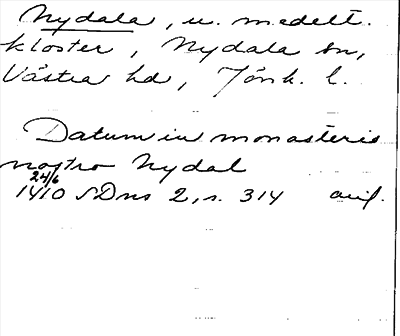 Nydala, u. medelt.
kloster, Nydala sn,
Västra hd, Jönk. l.
Datum in monasterio
nostro Nydal
24/6
1410 SDns 2, s. 314 avs.